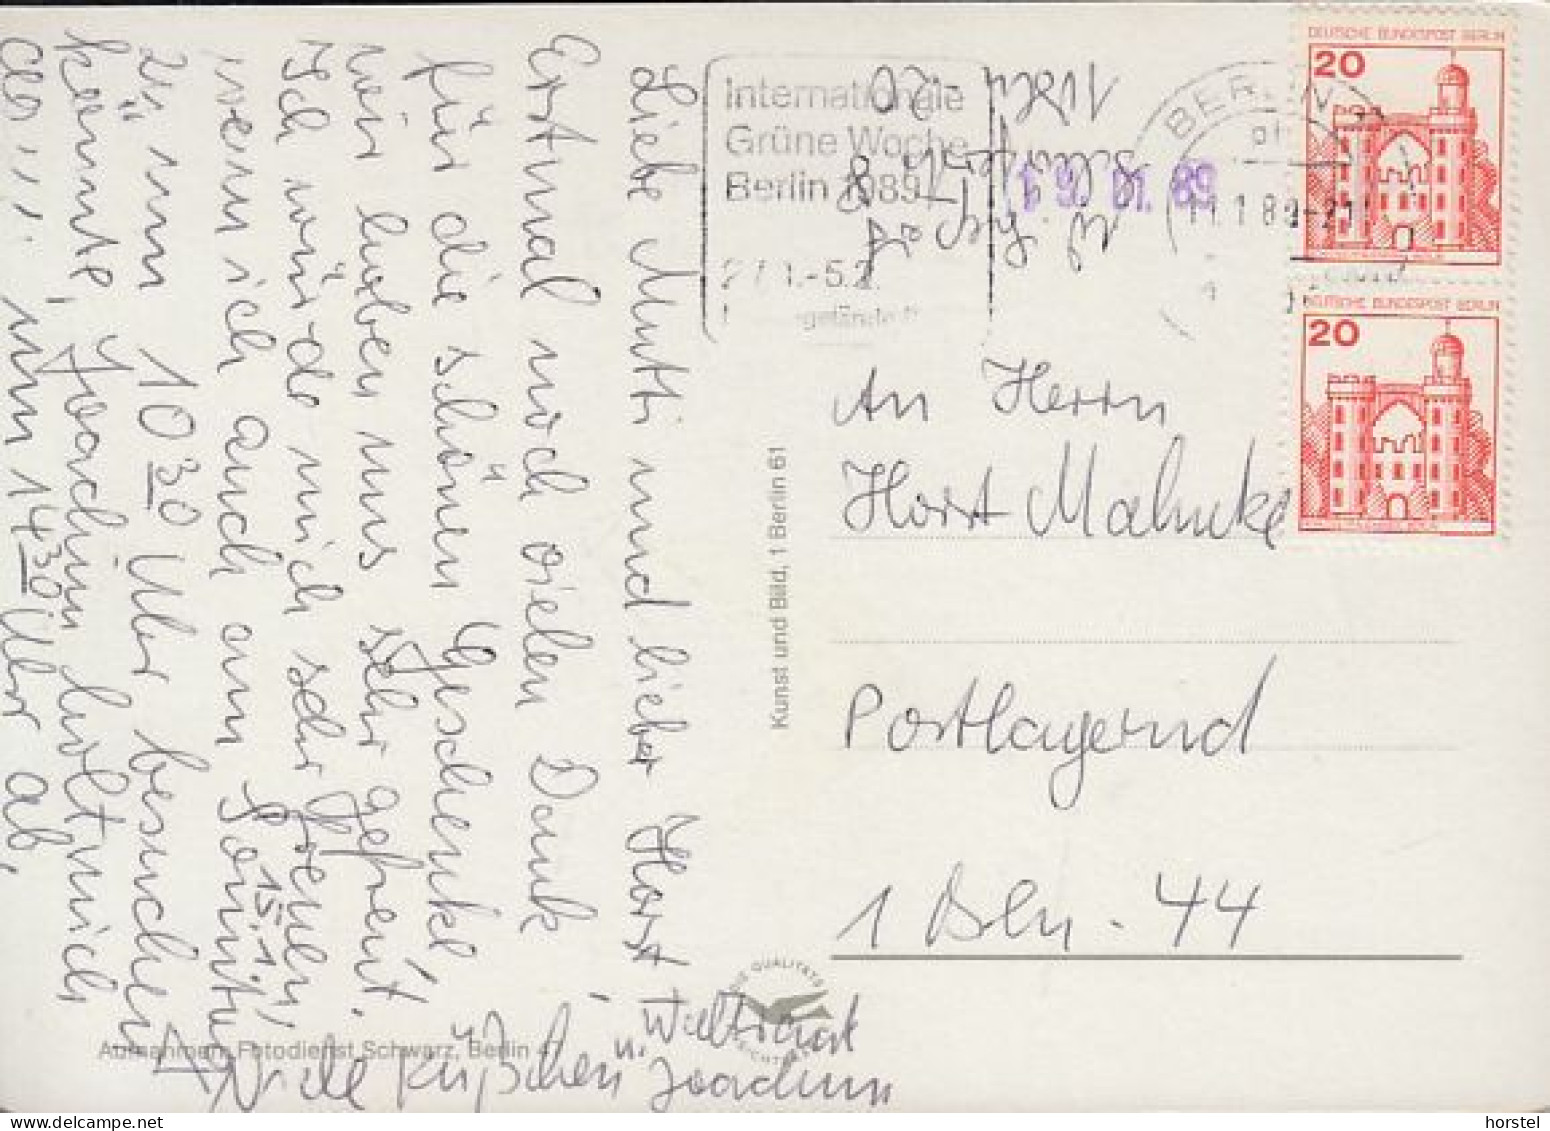 Liebe Mutti und lieber Horst
Erstmal noch vielen Dank
für die schönen Geschenke,
wir haben uns sehr gefreut.
Ich würde mich sehr freuen,
wenn ich auch am Sonntag
15.1.
zu um 10 30 Uhr besuchen
könnte, Joachim holt mich
um 14 30 Uhr ab,
Viele Küßchen
Waltraut
u. Joachim
Aufnahmen: Fotodienst Schwarz, Berlin
Kunst und Bild, 1 Berlin 61
QUALITÄTS
Internationale
Grüne Woche
Berlin 1989
27.1.-5.2.
19. 01. 89
BERLIN
11.1.89-21
DEUTSCHE BUNDESPOST BERLIN
20
DEUTSCHE BUNDESPOST BERLIN
20
An Herrn
Horst Mahnke
Postlagernd
1 Bln. - 44